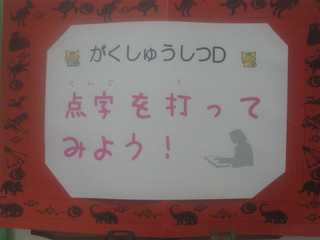 がくしゅうしつD
点字を打って
みよう！